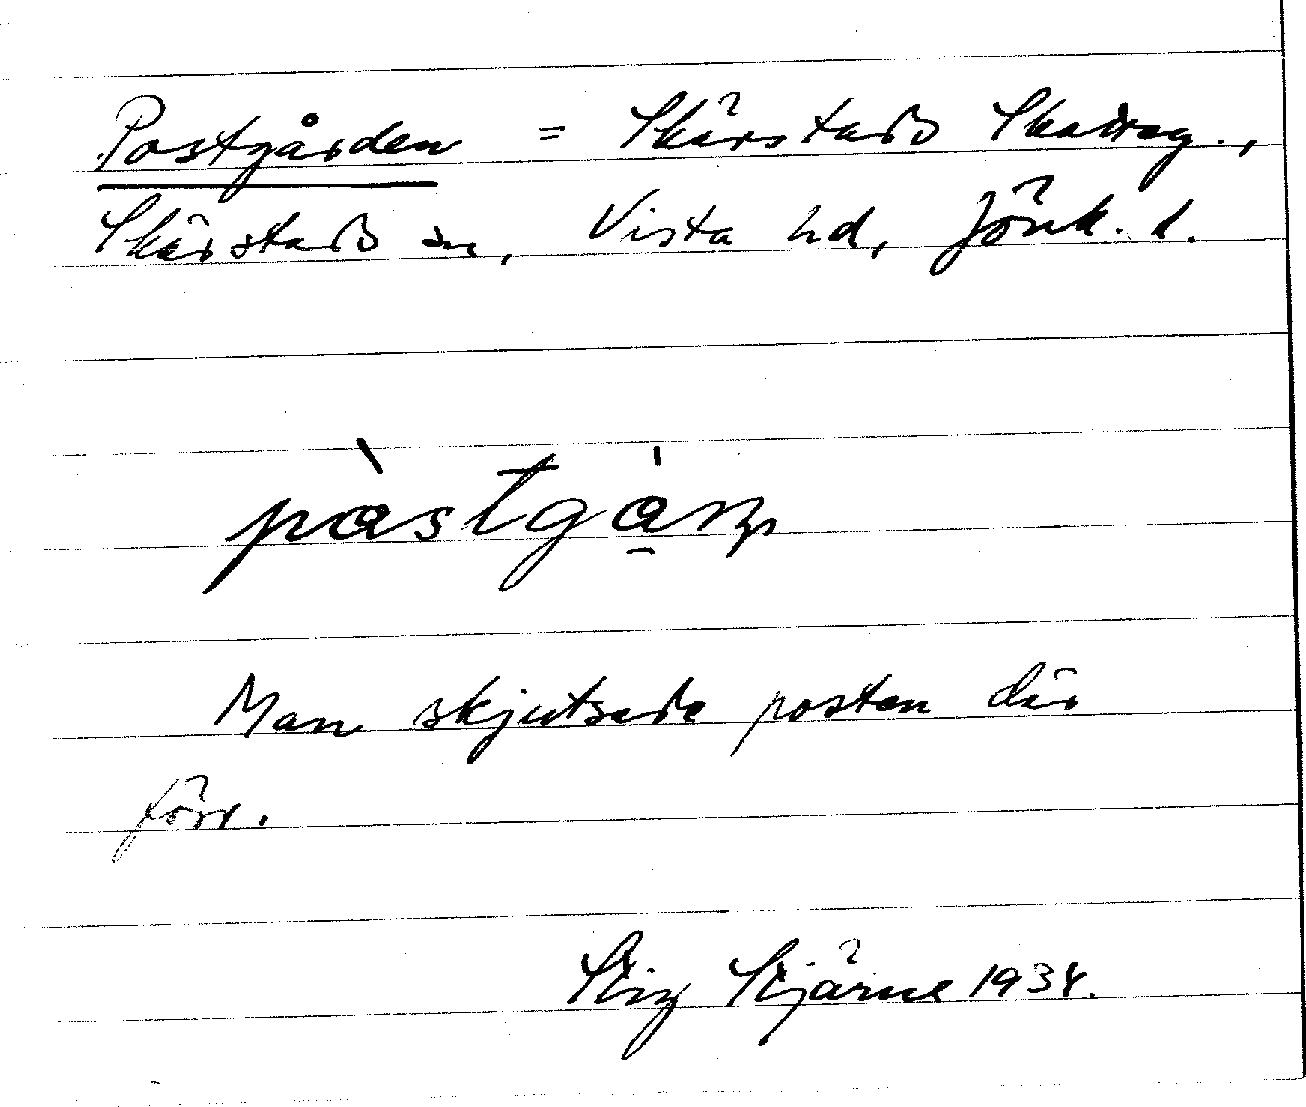 Postgården = Skärstads Skatteg.,
Skärstads sn, Vista hd, Jönk. l.
påstgån
Man skjutsade posten där
förr.
Stig Stjärne 1934.